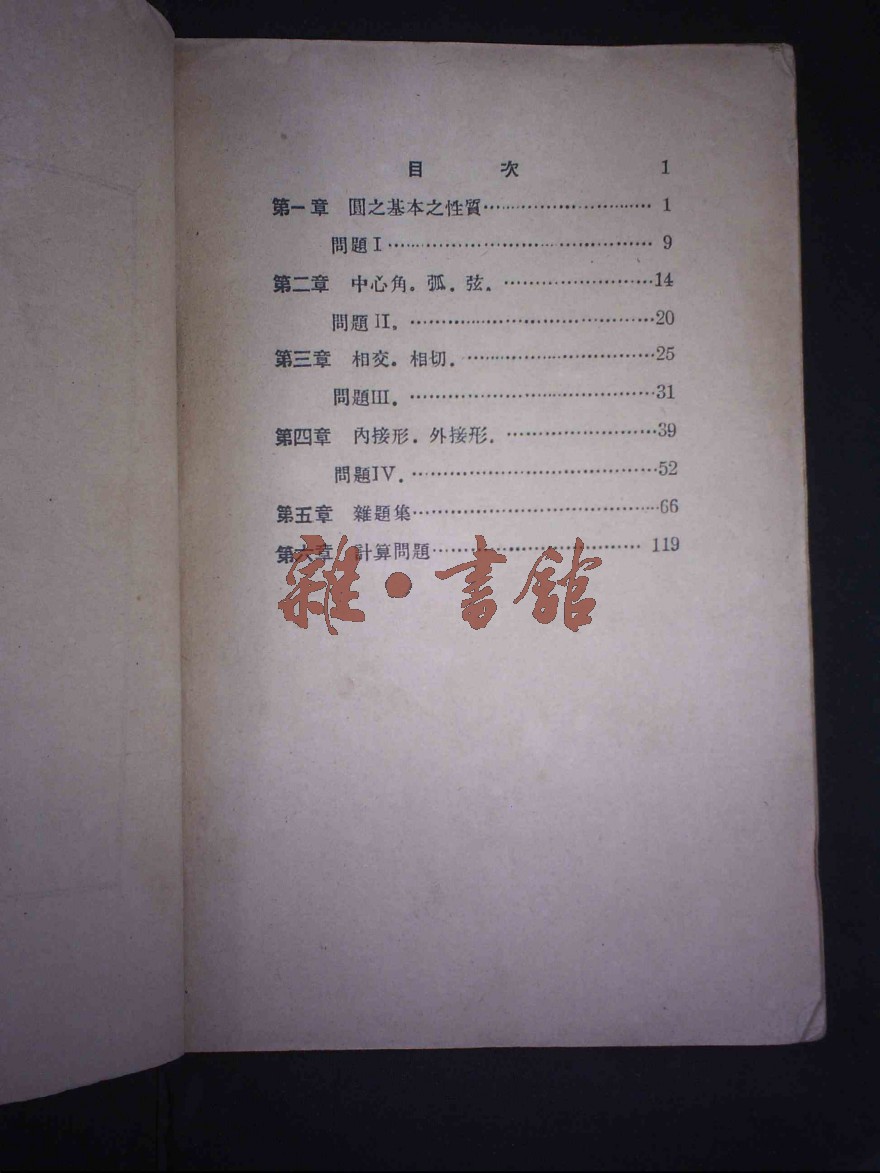 目 次 1
第一章 圓之基本之性質…………………………1
問題I……………………………………9
第二章 中心角。弧．弦．……………………14
問題II．…………………………………20
第三章 相交．相切．…………………………25
問題III．…………………………………31
第四章 內接形．外接形．……………………39
問題IV．…………………………………52
第五章 雜題集…………………………………66
第六章 計算問題……………………………119
雜·書館